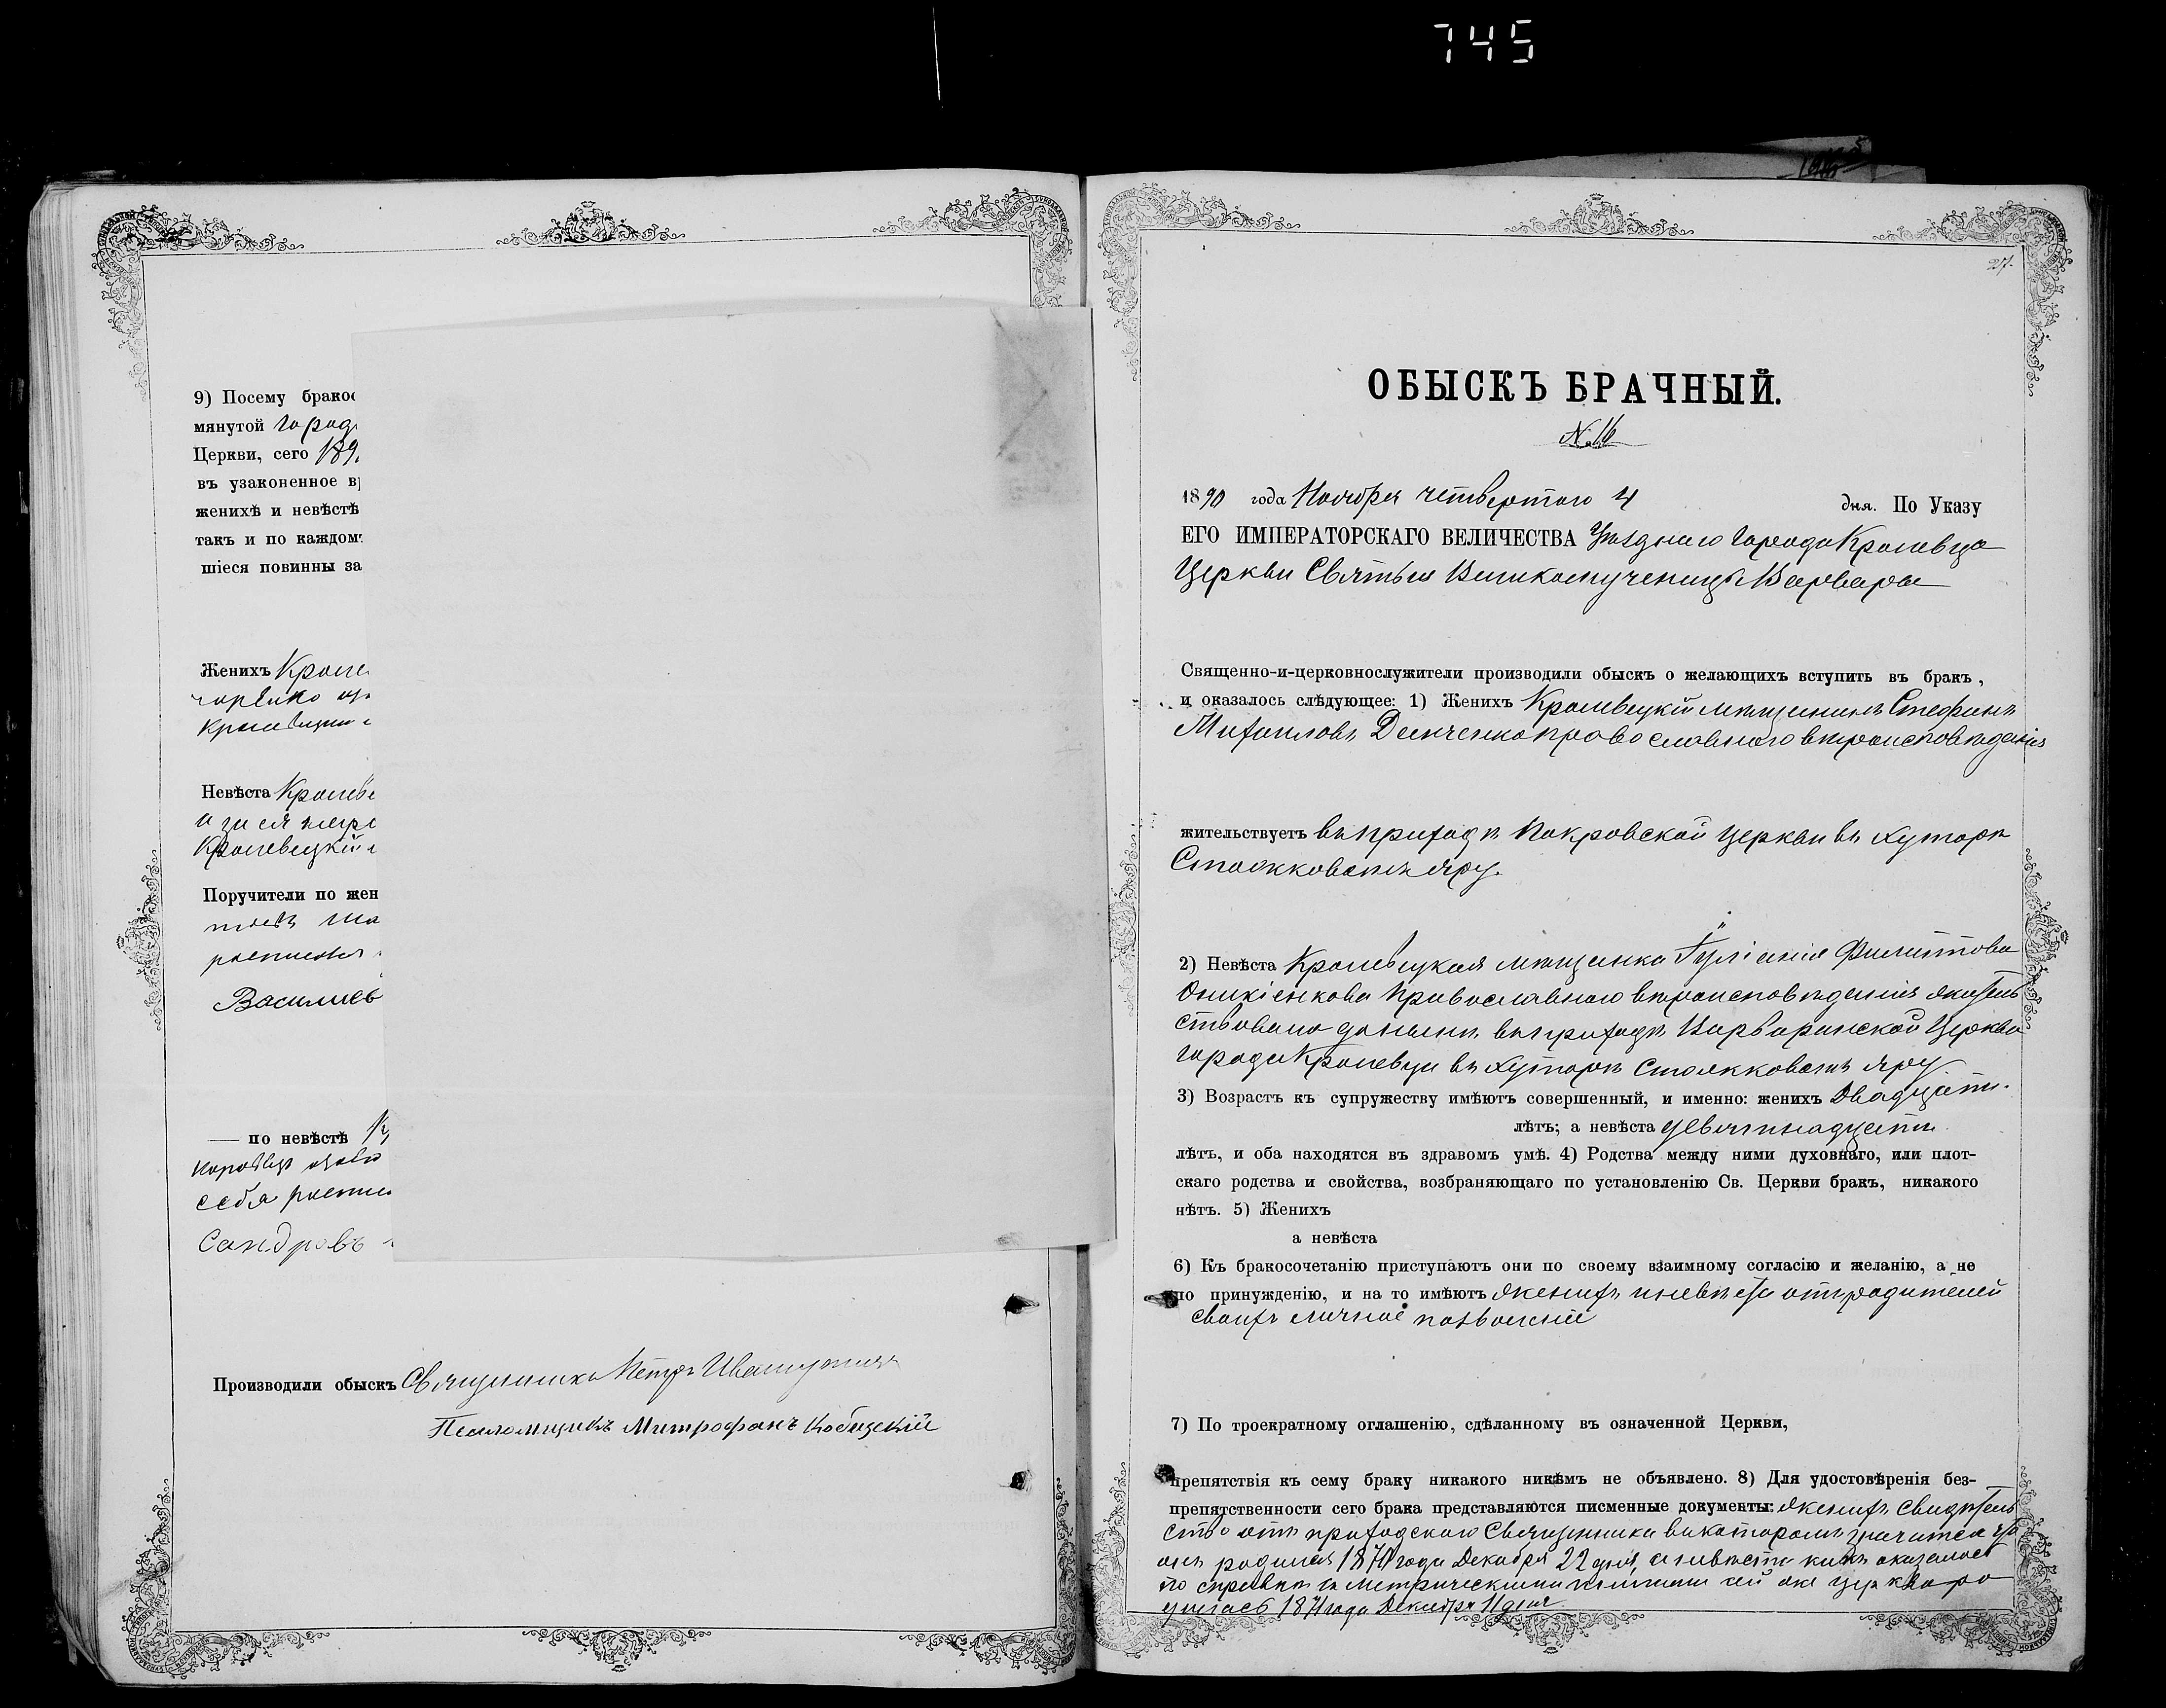 745
9) Посему бракос
мянутой город
Церкви, сего 189
въ узаконенное в
женихѣ и невѣстѣ
такъ и по каждом
шіеся повинны за
Женихъ Кроле
Невѣста Кролев
Кролевецкій
Поручители по жен
Василіев
— по невѣстѣ
себя
Сандровъ
Производили обыскъ Священникъ Петръ
Псаломщикъ Митрофанъ Кобыцкій
27.
ОБЫСКЪ БРАЧНЫЙ.
№ 16
1890 года Ноября четвертого 4 дня. По Указу
ЕГО ИМПЕРАТОРСКАГО ВЕЛИЧЕСТВА Уѣзднаго города Кролевца
Церкви Святыя Великомученицы Варвары
Священно-и-церковнослужители производили обыскъ о желающихъ вступить въ бракъ,
и оказалось слѣдующее: 1) Женихъ Кролевецкій мѣщанинъ Стефанъ
Михаиловъ Демченко православнаго вѣроисповѣданія
жительствуетъ въ приходѣ Покровской церкви въ хуторѣ
Яру.
2) Невѣста Кролевецкая мѣщанка Іуліанія Филиппова
Оникіенкова православнаго вѣроисповѣданія жител
ствовала донынѣ въ приходѣ Варваринской Церкви
города Кролевца въ хуторѣ Яру
3) Возрастъ къ супружеству имѣютъ совершенный, и именно: женихъ Двадцати
лѣтъ; а невѣста девятнадцати
лѣтъ, и оба находятся въ здравомъ умѣ. 4) Родства между ними духовнаго, или плот-
скаго родства и свойства, возбраняющаго по установленію Св. Церкви бракъ, никакого
нѣтъ. 5) Женихъ
а невѣста
6) Къ бракосочетанію приступаютъ они по своему взаимному согласію и желанію, а не
по принужденію, и на то имѣютъ женихъ и невѣста отъ родителей
своихъ личное позволеніе
7) По троекратному оглашенію, сдѣланному въ означенной Церкви,
препятствія къ сему браку никакого никѣмъ не объявлено. 8) Для удостовѣренія без-
препятственности сего брака представляются писменные документы: женихъ свидѣтель
ство отъ приходскаго Священника въ которомъ значится что
онъ родился 1870 года Декабря 22 дня, а невѣста какъ оказалось
по справкѣ съ метрическими книгами сей же церкви ро
дилась 1871 года Декабря 11 дня